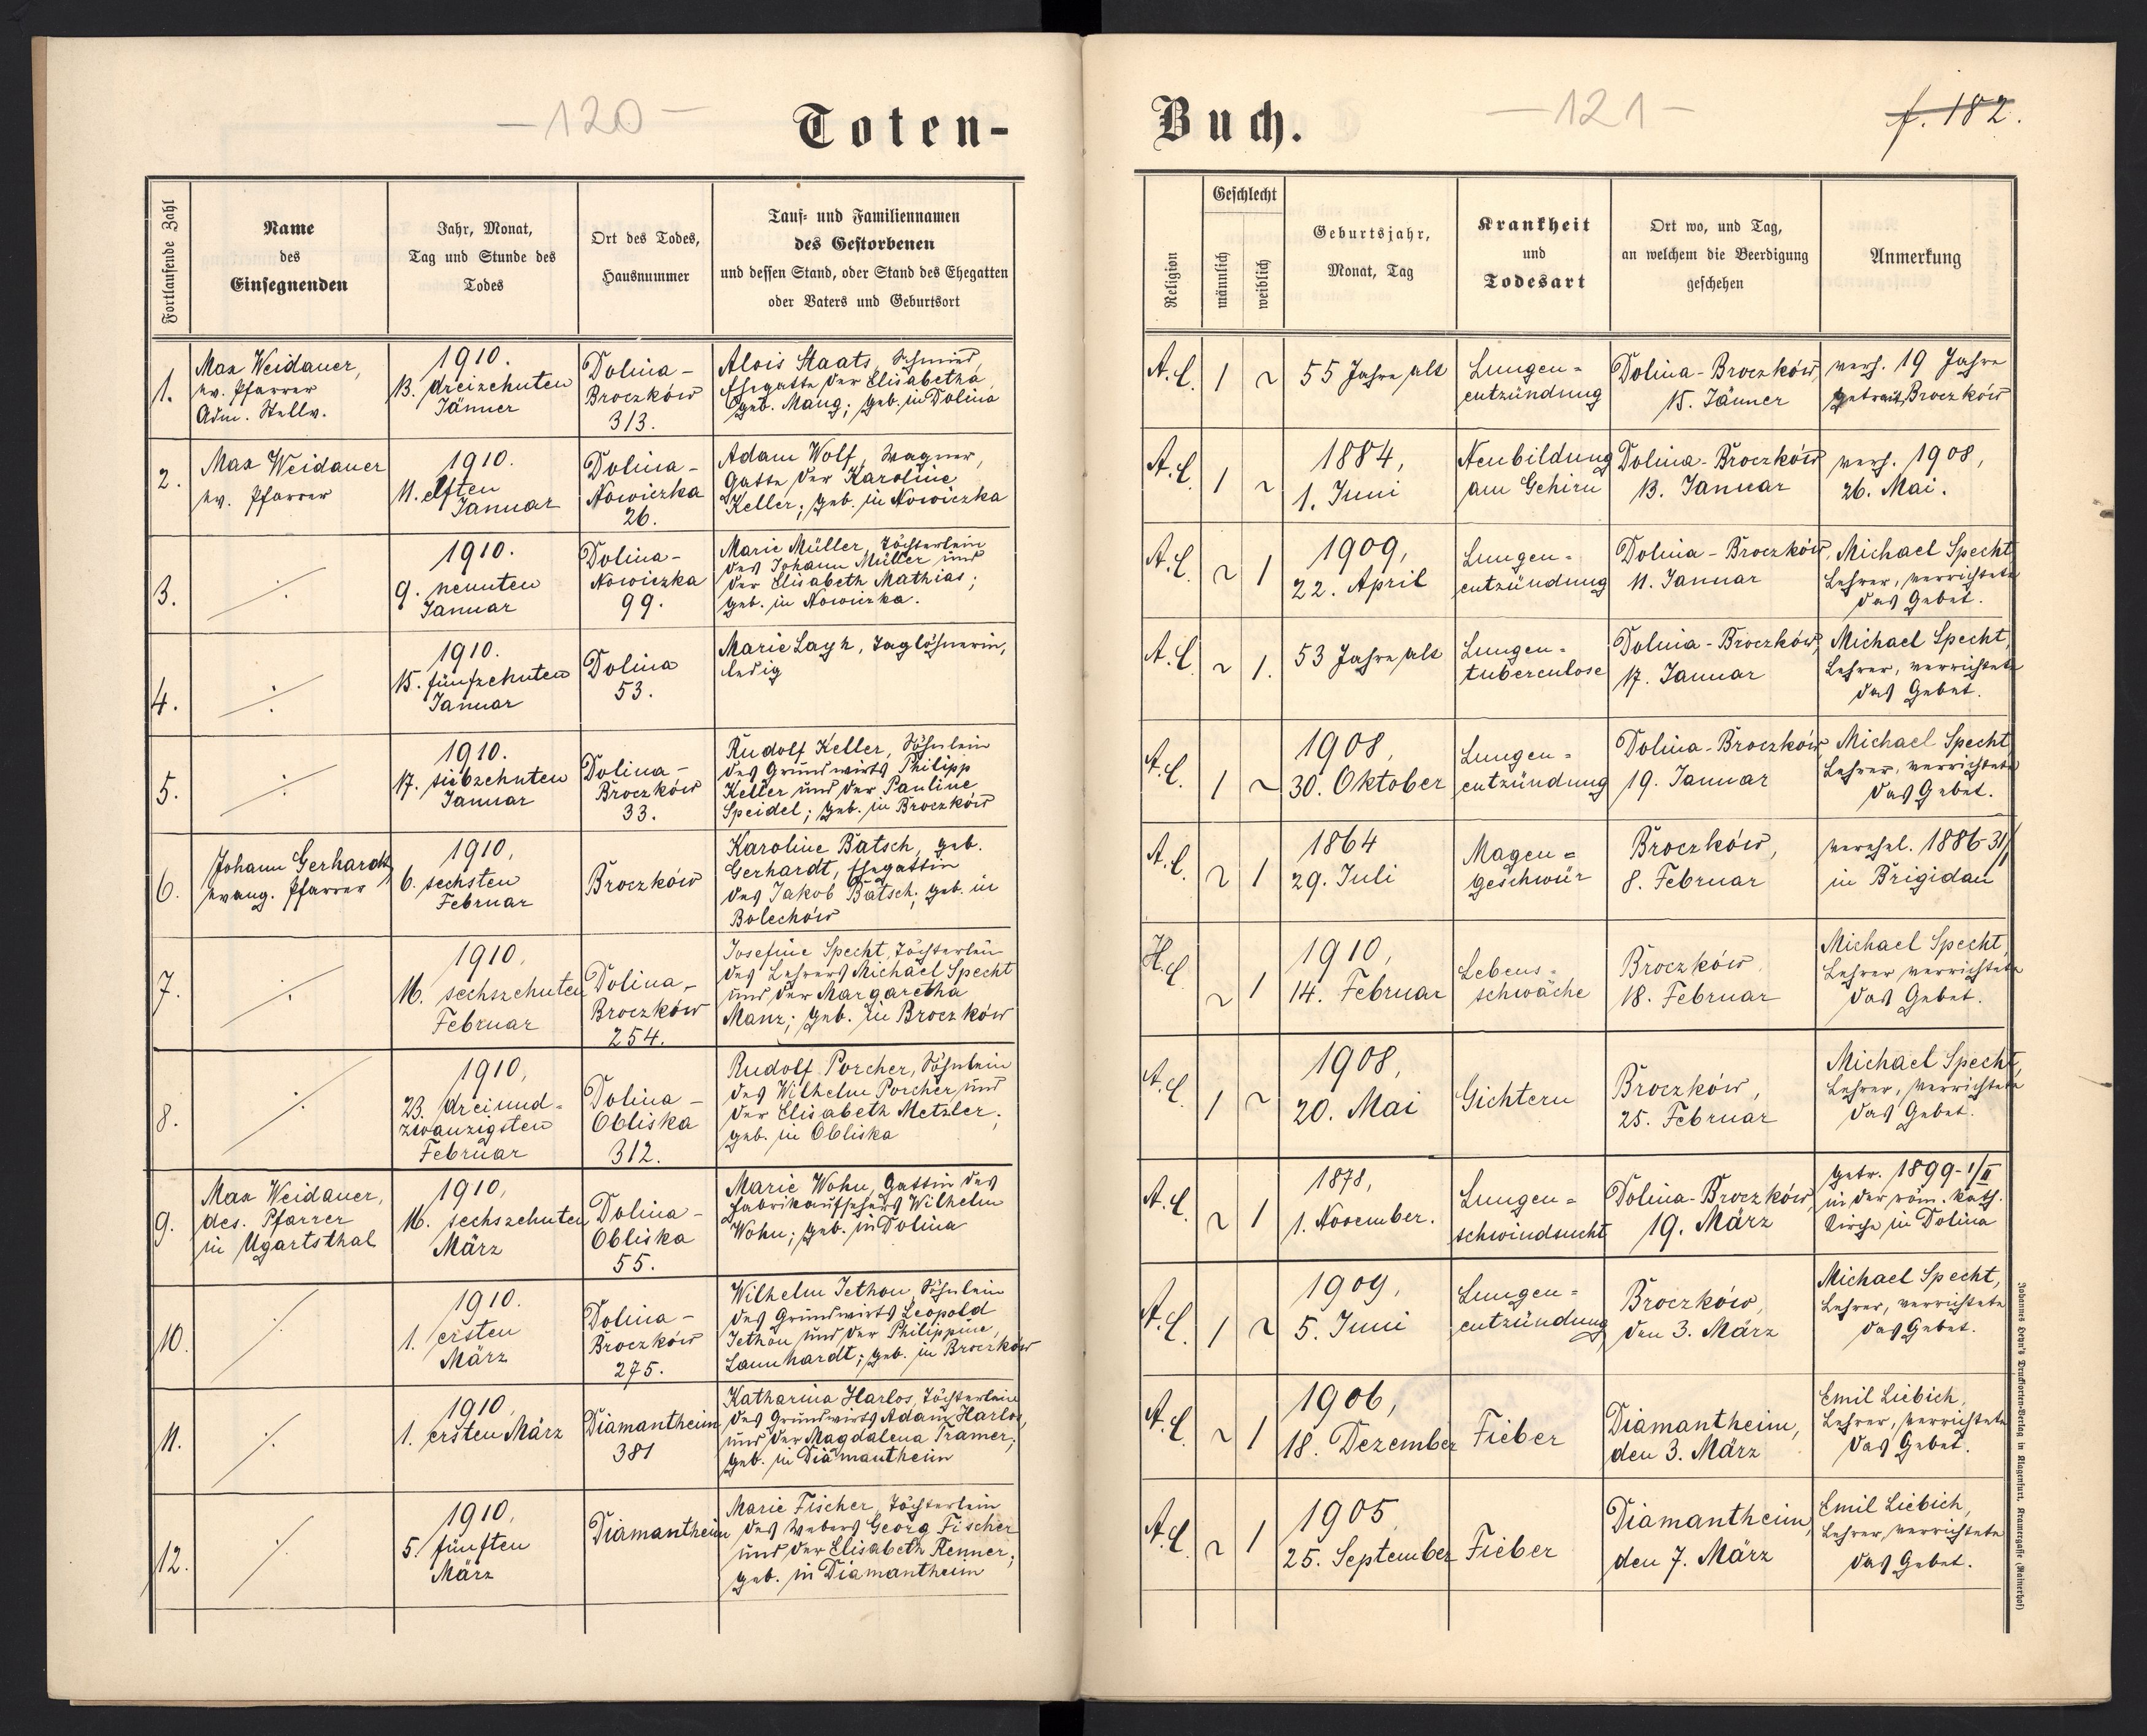 — 120 —
Toten-
Fortlaufende Zahl
Name
des
Einsegnenden
Jahr, Monat,
Tag und Stunde des
Todes
Ort des Todes,
Hausnummer
Tauf- und Familiennamen
des Gestorbenen
und dessen Stand, oder Stand des Ehegatten
oder Vaters und Geburtsort
1.
Max Weidauer,
ev. Pfarrer
Adm. Stellv.
1910.
13. dreizehnten
Jänner
Dolina-
Broczków
313.
Alois Staats, Schmied,
Ehegatte der Elisabetha
geb. Mang; geb. in Dolina
2.
Max Weidauer
ev. Pfarrer
1910.
11. elften
Januar
Dolina-
Nowiczka
26.
Adam Wolf, Wagner,
Gatte der Karoline
Keller; geb. in Nowiczka
3.
1910.
9. neunten
Januar
Dolina-
Nowiczka
99.
Marie Müller, Töchterlein
des Johann Müller und
der Elisabeth Mathias;
geb. in Nowiczka.
4.
1910.
15. fünfzehnten
Januar
Dolina
53.
Marie Layh, Taglöhnerin,
ledig
5.
1910.
17. siebzehnten
Januar
Dolina-
Broczków
33.
Rudolf Keller, Söhnlein
des Grundwirts Philipp
Keller und der Pauline
Speidel; geb. in Broczków
6.
Johann Gerhardt,
evang. Pfarrer
1910,
6. sechsten
Februar
Broczków
Karoline Bätsch, geb.
Gerhardt, Ehegattin
des Jakob Bätsch; geb. in
Bolechów
7.
1910,
16. sechszehnten
Februar
Dolina-
Broczków
254.
Josefine Specht, Töchterlein
des Lehrers Michael Specht
und der Margaretha
Manz; geb. in Broczków
8.
1910,
23. dreiund-
zwanzigsten
Februar
Dolina-
Obliska
312.
Rudolf Porcher, Söhnlein
des Wilhelm Porcher und
der Elisabeth Metzler;
geb. in Obliska
9.
Max Weidauer,
des. Pfarrer
in Ugartsthal
1910,
16. sechszehnten
März
Dolina-
Obliska
55.
Marie Wohn, Gattin des
Fabrikaufsehers Wilhelm
Wohn; geb. in Dolina
10.
1910.
1. ersten
März
Dolina-
Broczków
275.
Wilhelm Jethon, Söhnlein
des Grundwirts Leopold
Jethon und der Philippine
Lannhardt; geb. in Broczków
11.
1910,
1. ersten März
Diamantheim
381
Katharina Harlos, Töchterlein
des Grundwirts Adam Harlos,
und der Magdalena Tramer;
geb. in Diamantheim
12.
1910,
5. fünften
März
Diamantheim
Marie Fischer, Töchterlein
des Webers Georg Fischer
und der Elisabeth Renner;
geb. in Diamantheim
Buch.
— 121 —
f. 182.
Religion
Geschlecht
männlich
weiblich
Geburtsjahr,
Monat, Tag
Krankheit
und
Todesart
Ort wo, und Tag,
an welchem die Beerdigung
geschehen
Anmerkung
A.C.
1
~
55 Jahre alt
Lungen=
entzündung
Dolina-Broczków,
15. Jänner
verh. 19 Jahre
getraut, Broczków
A.C.
1
~
1884,
1. Juni
Neubildung
am Gehirn
Dolina-Broczków
13. Januar
verh. 1908,
26. Mai.
A.C.
~
1
1909,
22. April
Lungen=
entzündung
Dolina-Broczków,
11. Januar
Michael Specht
Lehrer, verrichtete
das Gebet.
A.C.
~
1.
53 Jahre alt
Lungen=
tuberculose
Dolina-Broczków,
17. Januar
Michael Specht,
Lehrer, verrichtete
das Gebet.
A.C.
1
~
1908,
30. Oktober
Lungen=
entzündung
Dolina-Broczków
19. Januar
Michael Specht
Lehrer, verrichtete
das Gebet.
A.C.
~
1
1864
29. Juli
Magen=
geschwür
Broczków,
8. Februar
verehel. 1886-31/
in Brigidau
H.C.
~
1
1910,
14. Februar
Lebens=
schwäche
Broczków,
18. Februar
Michael Specht,
Lehrer verrichtete
das Gebet.
A.C.
1
~
1908,
20. Mai
Gichtern
Broczków,
25. Februar
Michael Specht,
Lehrer, verrichtete
das Gebet.
A.C.
~
1
1878,
1. November.
Lungen=
schwindsucht
Dolina-Broczków,
19. März
getr. 1899-1/II
in der röm. kath.
Kirche in Dolina
A.C.
1
~
1909,
5. Juni
Lungen=
entzündung
Broczków,
den 3. März
Michael Specht,
Lehrer, verrichtete
das Gebet.
A.C.
~
1
1906,
18. Dezember
Fieber
Diamantheim,
den 3. März
Emil Liebich,
Lehrer, verrichtete
das Gebet.
A.C.
~
1
1905
25. September
Fieber
Diamantheim,
den 7. März
Emil Liebich,
Lehrer, verrichtete
das Gebet.
Johannes Heyn's Drucksorten-Verlag in Klagenfurt, Kramergasse (Rainerhof)